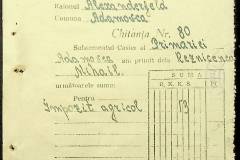 Raionul Alexanderfeld
Comuna Adamosca
Chitanţa Nr. 80
Subsemnatul Casier al Primăriei
Adamosca am primit dela Reznicenco
Mihail
următoarele sume:
SUMA
Pentru
Impozit agricol 53